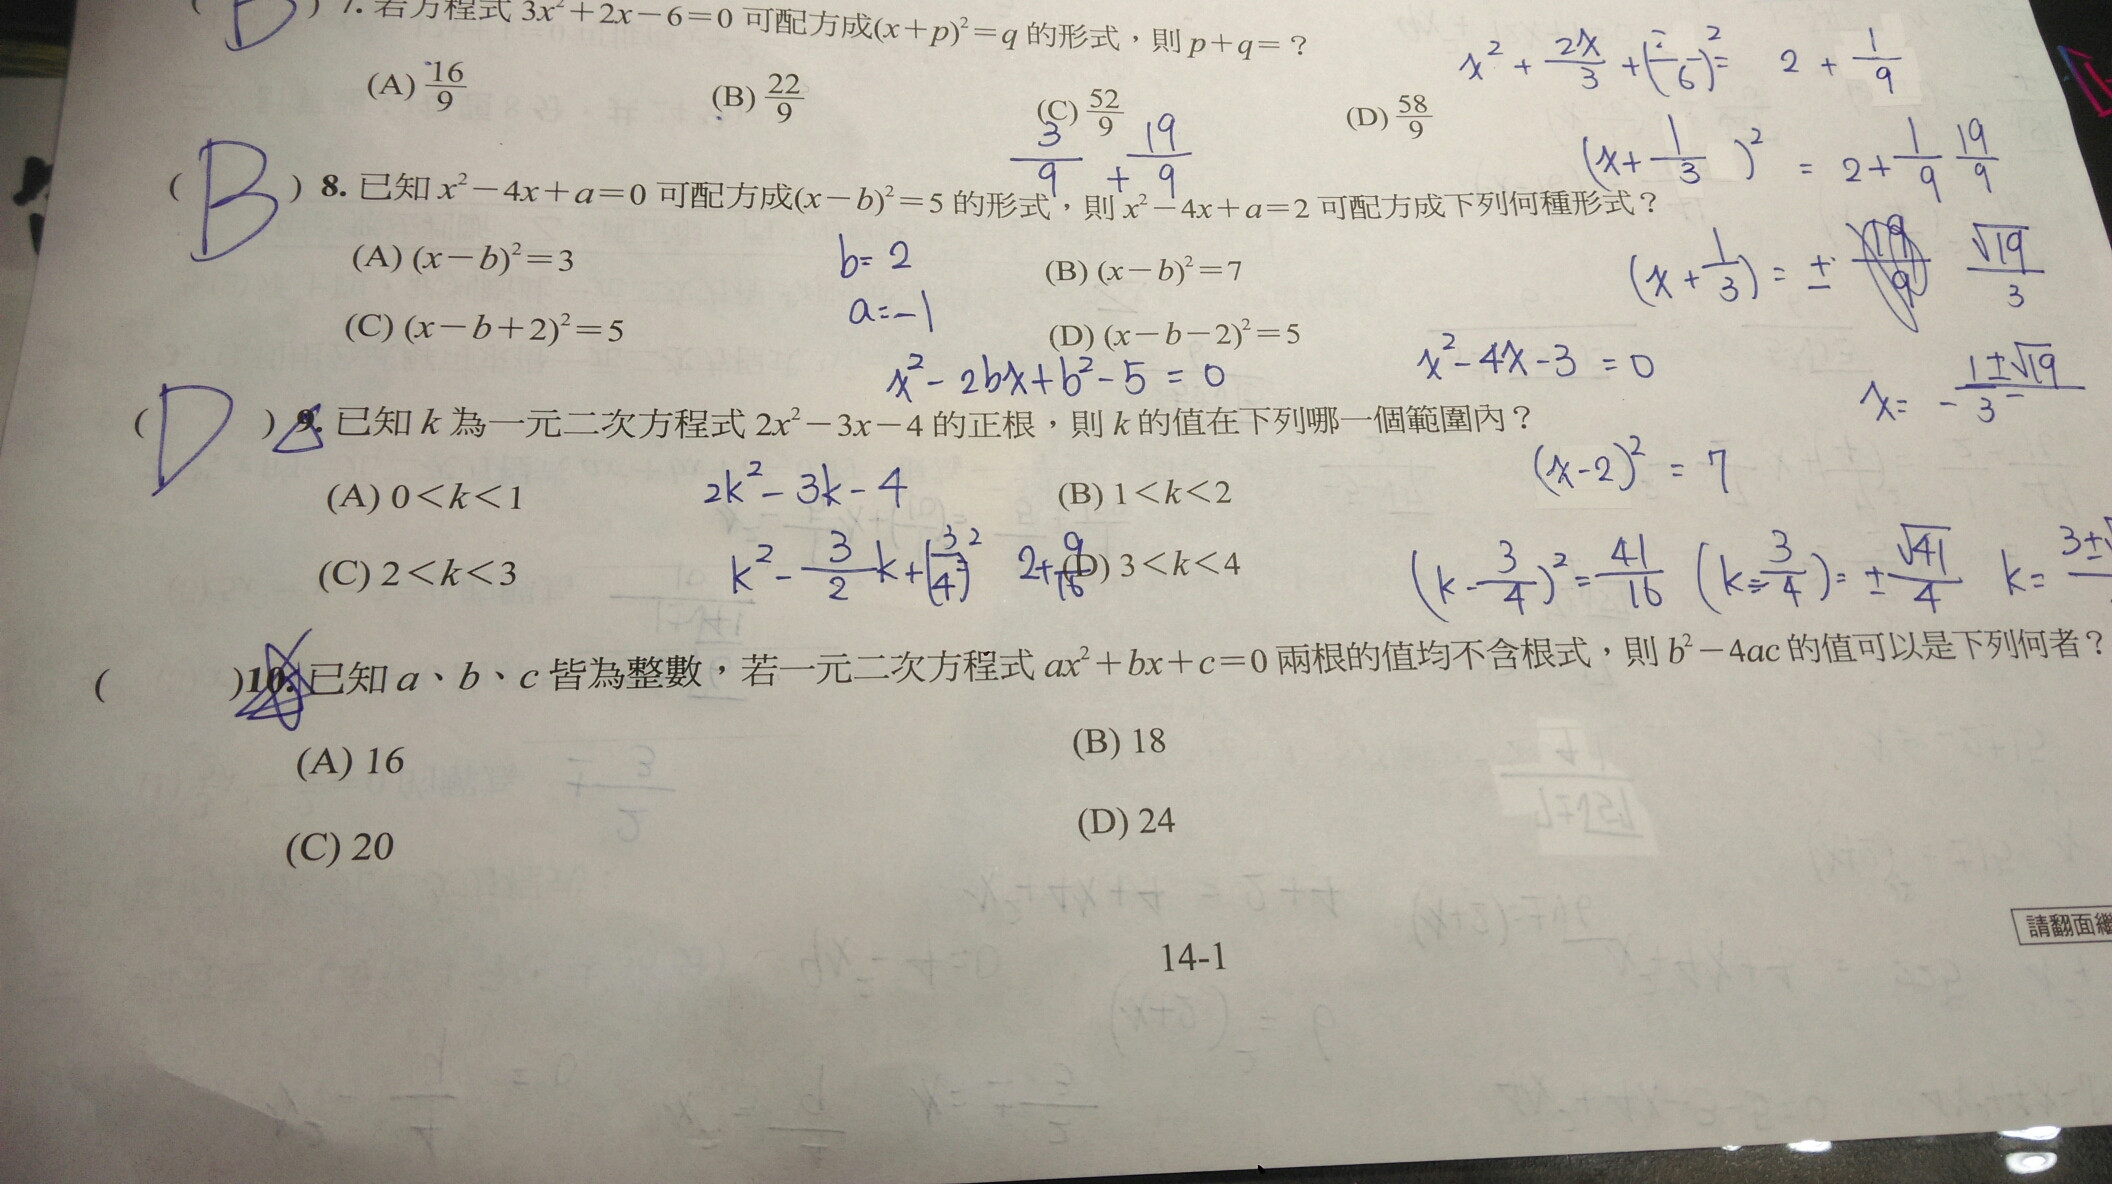 ( B ) 7. 若方程式 3x²+2x-6=0 可配方成(x+p)²=q 的形式，則 p+q=？
(A) 16/9 (B) 22/9 (C) 52/9 (D) 58/9
3/9 + 19/9
x² + 2x/3 + ( )² = 2 + 1/9
(x+ 1/3 )² = 2+ 1/9 19/9
(x+ 1/3) = ± √19/3
x= - 1±√19/3
( B ) 8. 已知 x²-4x+a=0 可配方成(x-b)²=5 的形式，則 x²-4x+a=2 可配方成下列何種形式？
(A) (x-b)²=3 (B) (x-b)²=7
(C) (x-b+2)²=5 (D) (x-b-2)²=5
b=2
a=-1
x²-2bx+b²-5=0
x²-4x-3=0
(x-2)²=7
( D ) 9. 已知 k 為一元二次方程式 2x²-3x-4 的正根，則 k 的值在下列哪一個範圍內？
(A) 0<k<1 (B) 1<k<2
(C) 2<k<3 (D) 3<k<4
2k²-3k-4
k²- 3/2 k+(3/4)² 2+ 9/16
(k- 3/4)²= 41/16 (k- 3/4)=± √41/4 k= 3±√
( )10. 已知 a、b、c 皆為整數，若一元二次方程式 ax²+bx+c=0 兩根的值均不含根式，則 b²-4ac 的值可以是下列何者？
(A) 16 (B) 18
(C) 20 (D) 24
14-1
請翻面繼